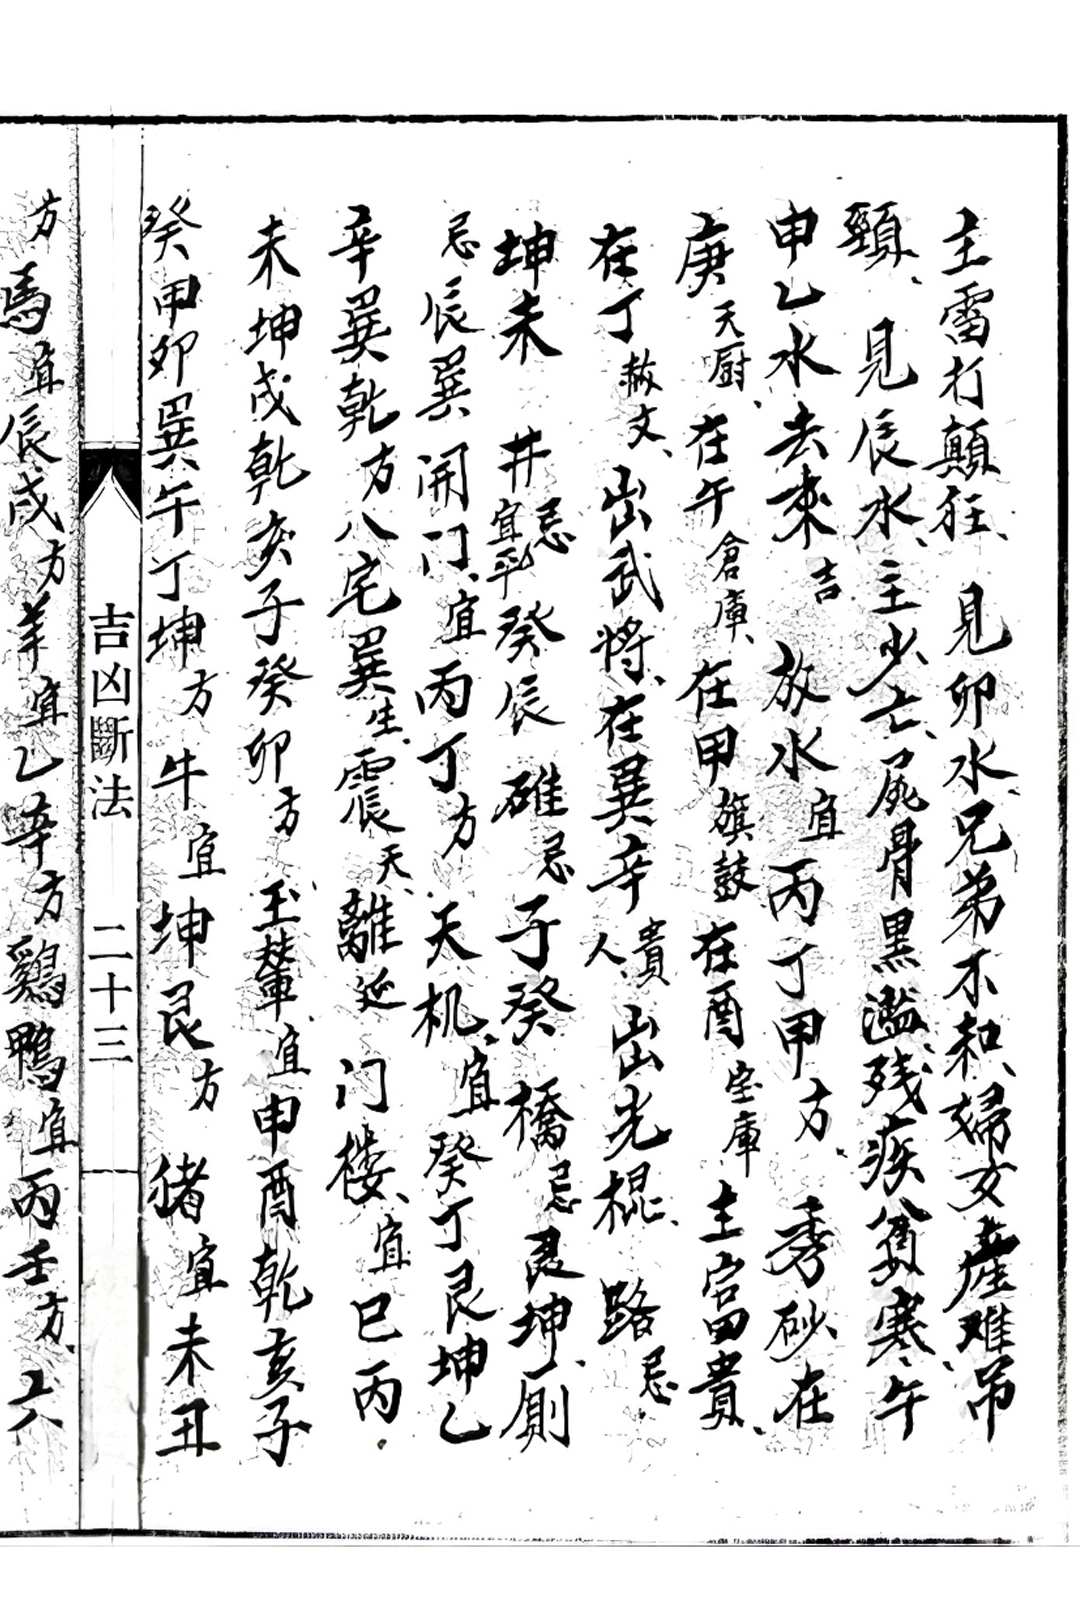 主雷打顛狂、見卯水、兄弟不和、婦女產难吊
頸、見辰水、主少亡、屍骨黑濫、残疾貧寒、午
申乙水去來吉　放水宜丙丁甲方、秀砂在
庚天厨、在午倉庫、在甲旗鼓在酉宝庫主富貴、
在丁赦文、出武將、在巽辛貴人出光棍、路忌
坤未　井忌宜平癸辰　碓忌子癸　橋忌艮坤、厠
忌辰巽　開门、宜丙丁方　天机、宜癸丁艮坤乙
辛巽乾方　八宅巽生、震天、離延　门楼、宜巳丙
未坤戌乾亥子癸卯方、玉輦、宜申酉乾亥子
癸甲卯巽午丁坤方　牛宜坤艮方　猪宜未丑
吉凶斷法　二十三
方　馬宜辰戌方　羊宜乙辛方　鷄鴨宜丙壬方、